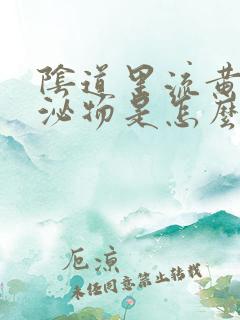 陰道里流黃
泌物是怎麼
厄凉
未经同意禁止转载